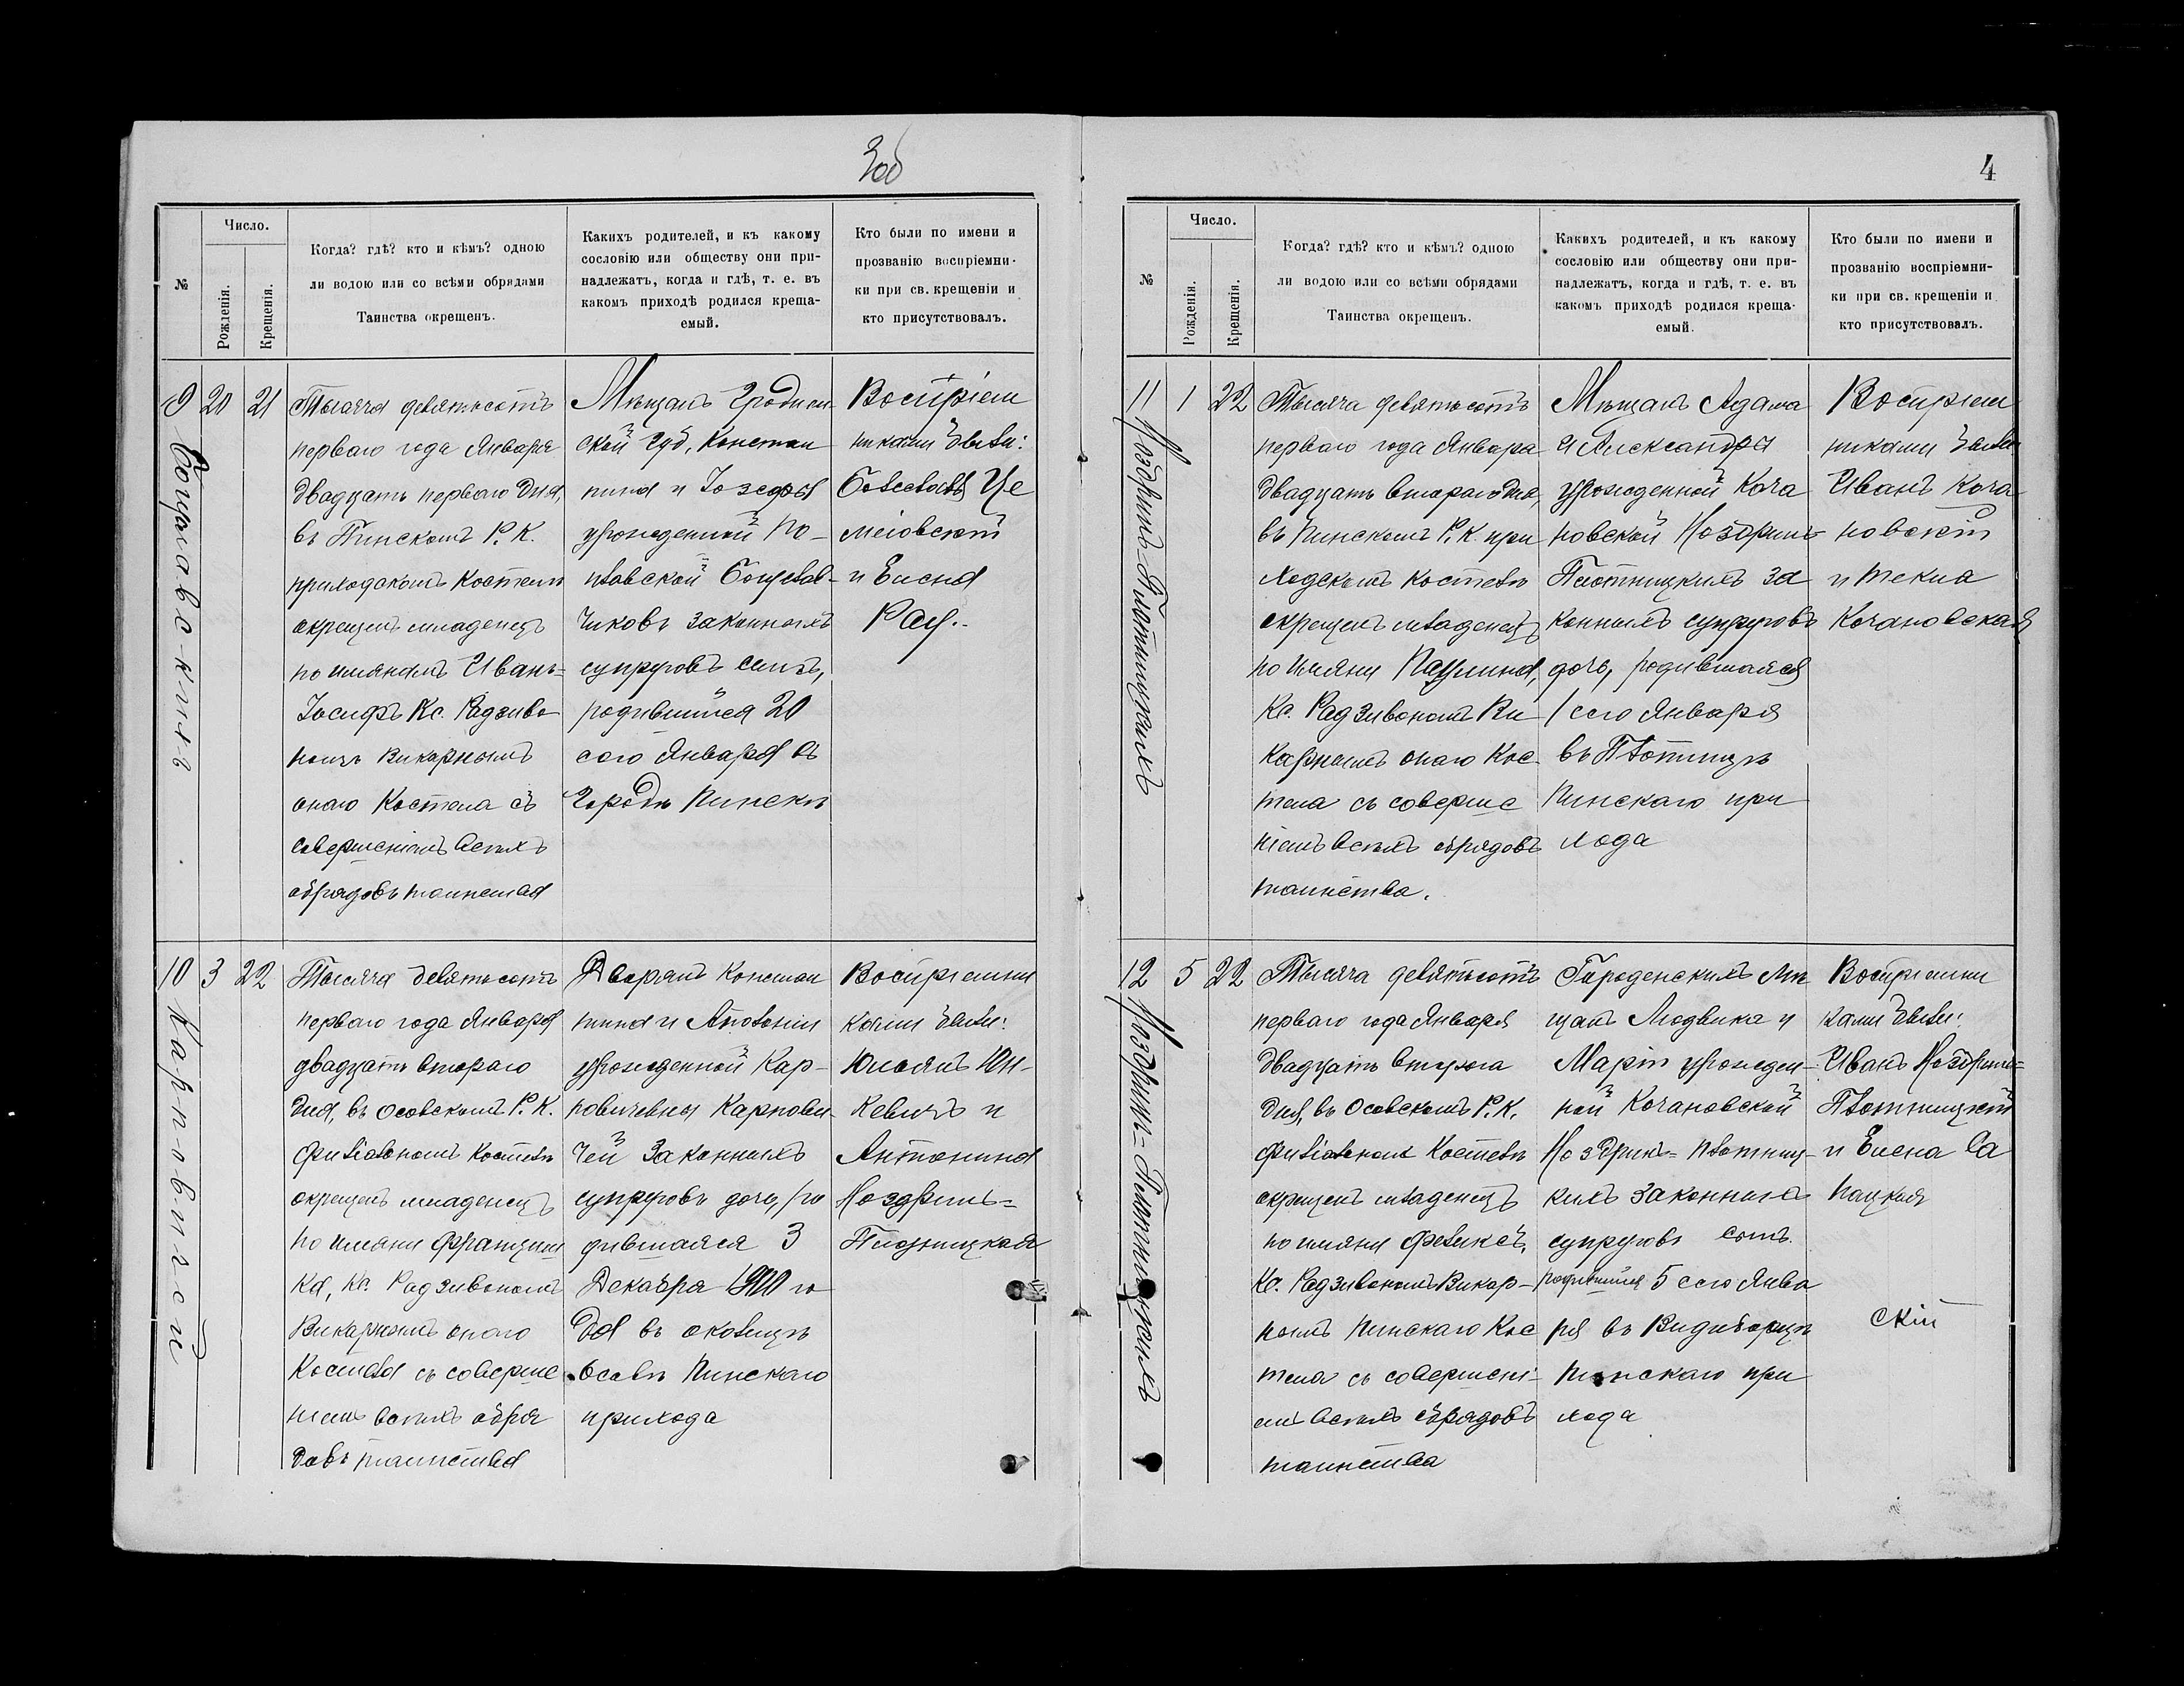 3об
4
№
Число.
Рожденія.
Крещенія.
Когда? гдѣ? кто и кѣмъ? одною
ли водою или со всѣми обрядами
Таинства окрещенъ.
Какихъ родителей, и къ какому
сословію или обществу они при-
надлежатъ, когда и гдѣ, т. е. въ
какомъ приходѣ родился креща-
емый.
Кто были по имени и
прозванію воспріемни-
ки при св. крещеніи и
кто присутствовалъ.
9
20
21
Тысяча девятьсотъ
перваго года Января
двадцать перваго дня,
въ Пинскомъ Р. К.
приходскомъ костелѣ
окрещенъ младенецъ
по имянамъ Иванъ-
Іосифъ Кс. Радзиво
номъ Викарнымъ
онаго Костела съ
совершеніемъ всѣхъ
обрядовъ таинства
Мѣщанъ Гроднен-
ской Губ. Констан
тина и Іозефы
урожденной По-
чиковъ законныхъ
супруговъ сынъ,
родившійся 20
сего Января въ
Городѣ Пинскѣ
Воспріем
никами были:
Болеславъ Це
и Елена
10
3
22
Карповичей
Тысяча девятьсотъ
перваго года Января
двадцать втораго
дня, въ Осовскомъ Р. К.
филіальномъ костелѣ
окрещенъ младенецъ
по имяни Францишка
ка, Кс. Радзивономъ
Викарнымъ онаго
Костела съ соверше
ніемъ всѣхъ обря
довъ таинства
Дворянъ Констан
тина и Аполоніи
урожденной Кар-
повичевны Карпови-
чей законныхъ
супруговъ дочь, ро
дившаяся 3
Декабря 1900 го
да въ околицѣ
Осовѣ Пинскаго
прихода
Воспріемни
ками были:
Юльянъ Юн-
кевичъ и
Антонина
Ноздринъ-
Плотницкая
№
Число.
Рожденія.
Крещенія.
Когда? гдѣ? кто и кѣмъ? одною
ли водою или со всѣми обрядами
Таинства окрещенъ.
Какихъ родителей, и къ какому
сословію или обществу они при-
надлежатъ, когда и гдѣ, т. е. въ
какомъ приходѣ родился креща-
емый.
Кто были по имени и
прозванію воспріемни-
ки при св. крещеніи и
кто присутствовалъ.
11
1
22
Ноздринъ-Плотницкихъ
Тысяча девятьсотъ
перваго года Января
двадцать втораго дня,
въ Пинскомъ Р. К. при
ходскомъ костелѣ
окрещенъ младенецъ
по имяни Паулина,
Кс. Радзивономъ Ви
карнымъ онаго Кос-
тела съ соверше
ніемъ всѣхъ обрядовъ
таинства.
Мѣщанъ Адама
и Александры
урожденной Коча
новской Ноздринъ-
Плотницкихъ за
конныхъ супруговъ
дочь, родившаяся
1 сего Января
въ Плотницѣ
Пинскаго при
хода
Воспріем
никами были
Иванъ Коча
новскій
и Текла
Кочановская
12
5
22
Ноздринъ-Плотницкихъ
Тысяча девятьсотъ
перваго года Января
двадцать второга
дня, въ Осовскомъ Р. К.
филіальномъ Костелѣ
окрещенъ младенецъ
по имяни Феликсъ,
Кс. Радзивономъ Викар-
нымъ Пинскаго Кос
тела съ совершені-
емъ всѣхъ обрядовъ
таинства
Гароденскихъ мѣ
щанъ Людвика и
Маріи урожден-
ной Кочановской
Ноздринъ-Плотниц-
кихъ законныхъ
супруговъ сынъ.
родившійся 5 сего Янва
ря въ Видиборцѣ
Пинскаго при
хода
Воспріемни
ками были:
Иванъ Ноздринъ-
Плотницкій
и Елена Са
пацкая
скій